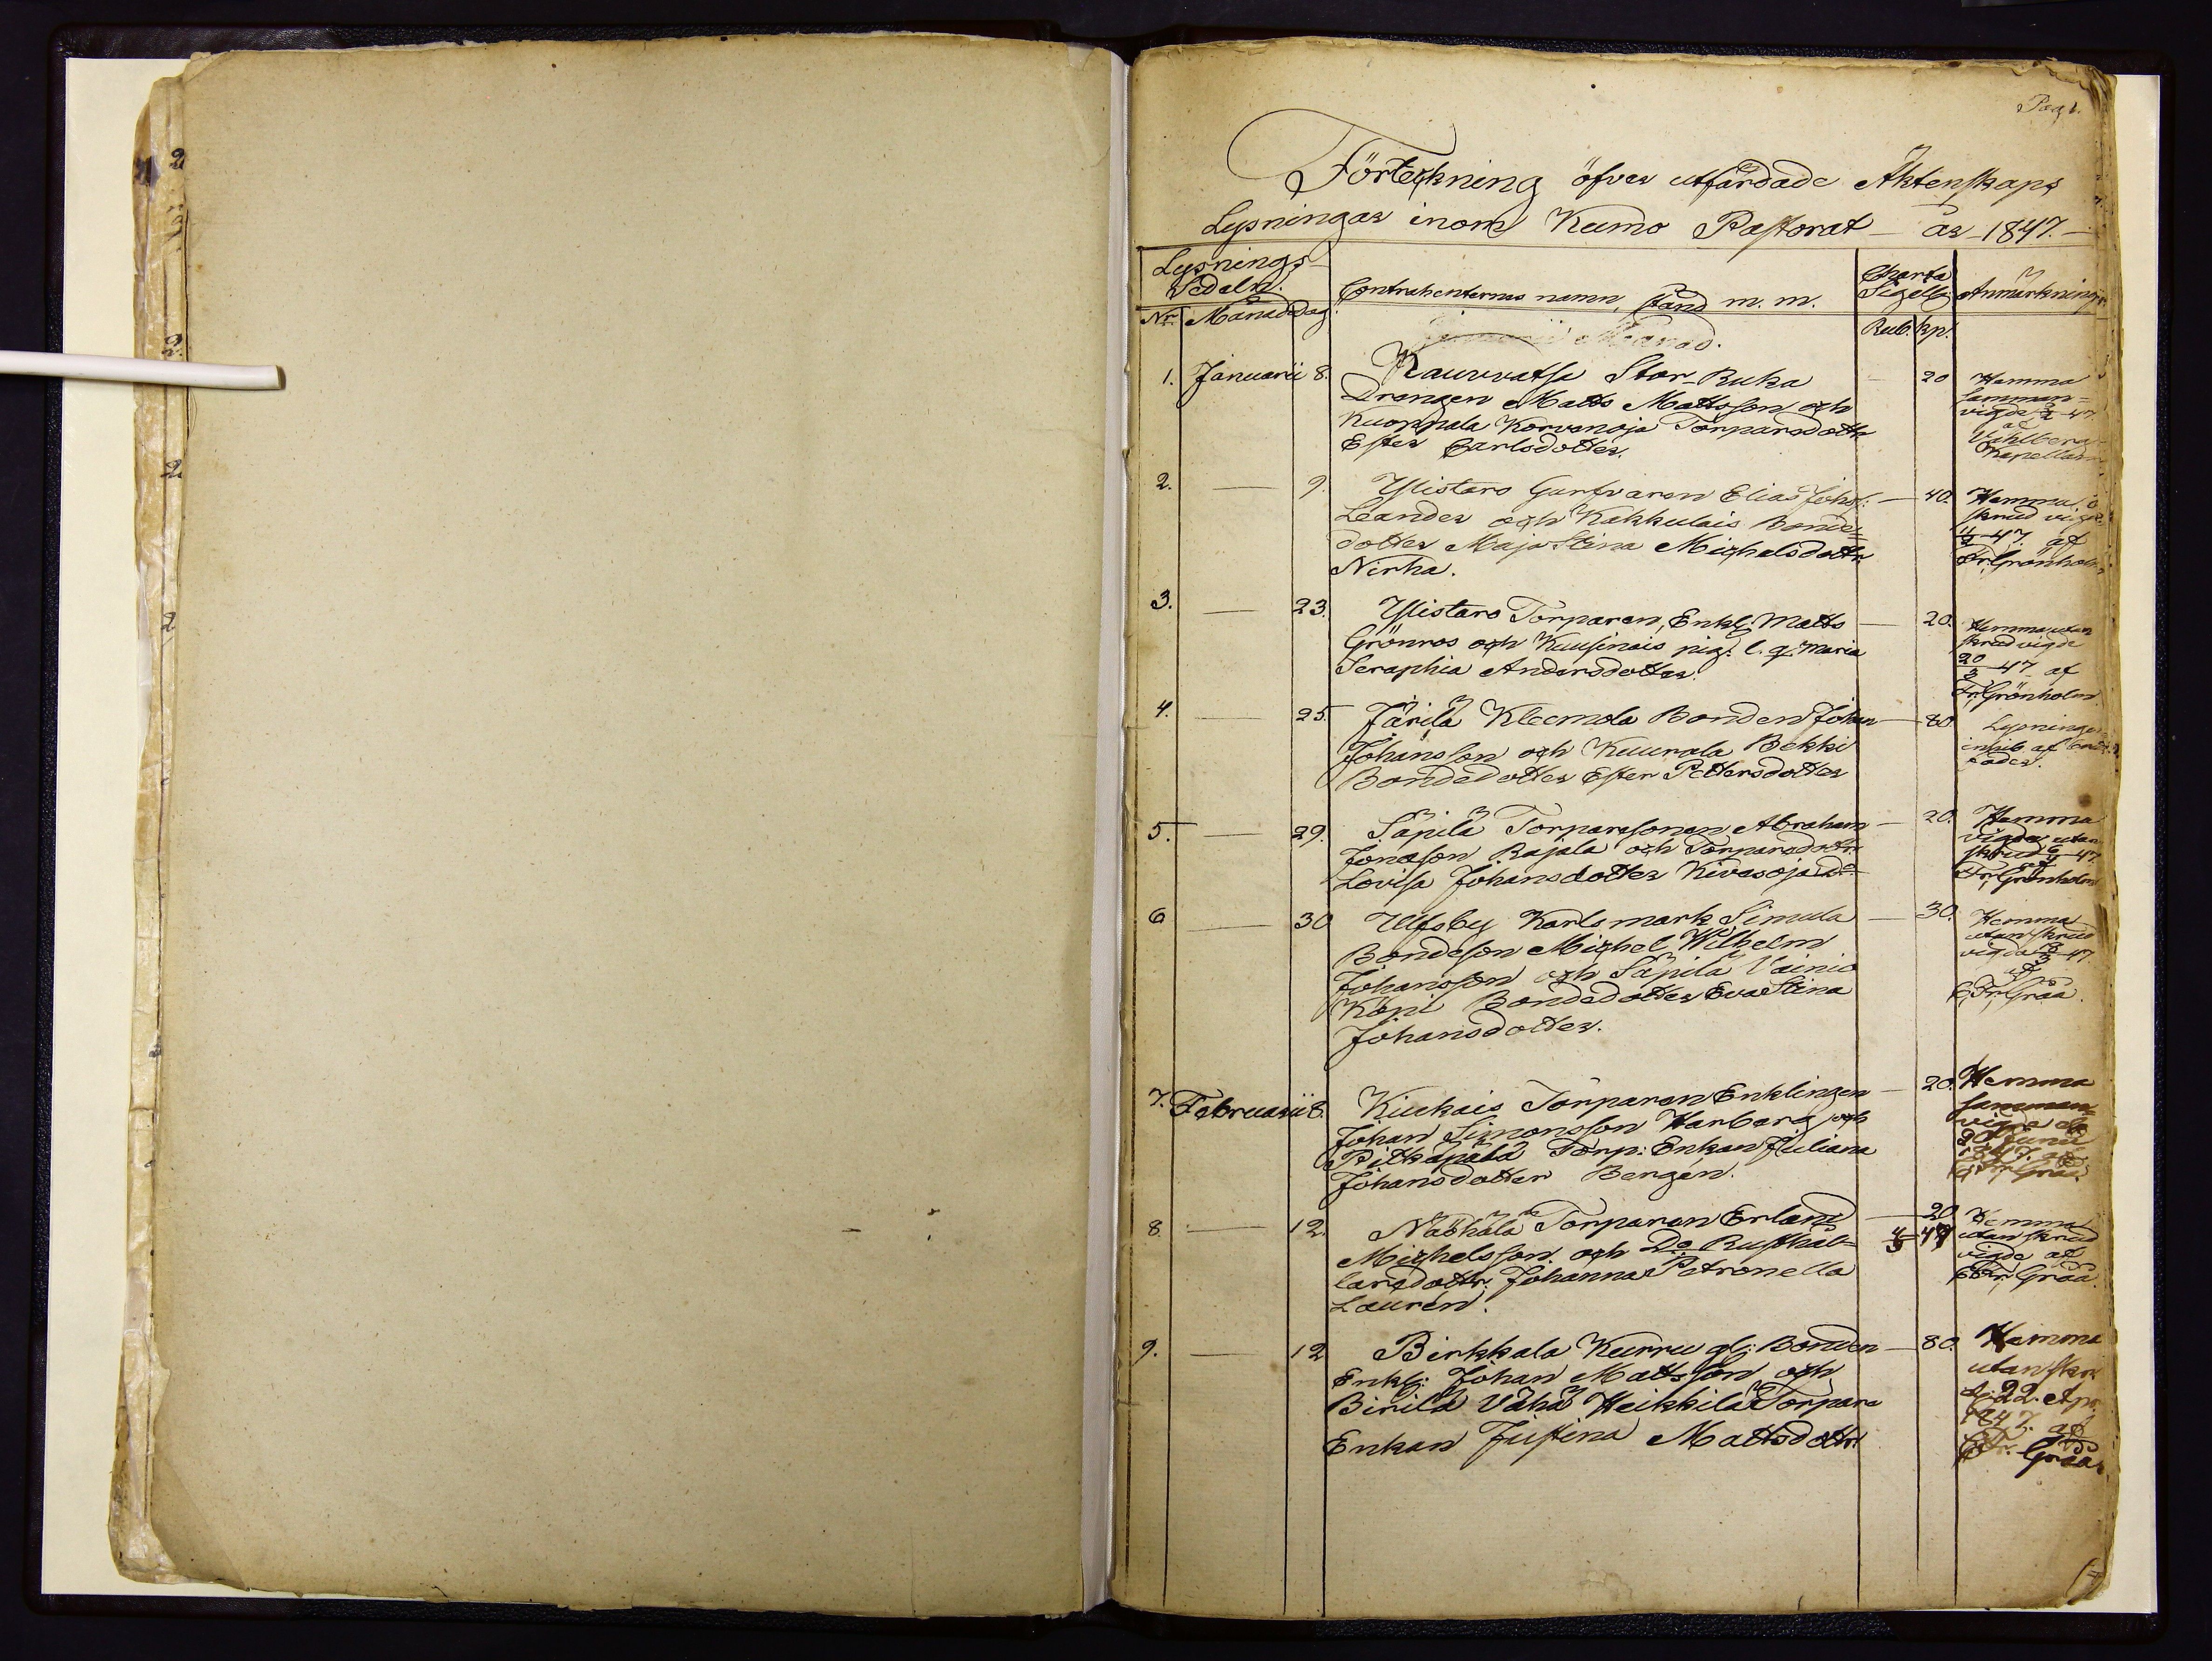 Pag 1.
Förteckning öfver utfärdade Äktenskaps
Lysningar inom Kumo Pastorat år 1847.
Lysnings-
Sedeln.
Contrahenternas namn, stånd m. m.
Charta
Sigill:
Anmärkningar
Nr Månad dag
Rub. kp.
Januarii Månad.
1. Januarii 8. Kauvvatsa Stor-Ruka — 20
Drängen Matts Mattsson och
Kuoppala Korvenoja Torparedottr
Ester Carlsdotter.
Hemma
samman-
vigde 47.
af
Kapellan
2. — 9. Ylistaro Garfvaren Elias Johs: — 40.
Leander och Kakkulais Bonde-
dotter Maja Stina Michelsdottr
Nirha.
Hemma i
skrud vigde
47. af
Fr. Grönholm
3. — 23. Ylistaro Torparen, Enkl: Matts — 20.
Grönroos och Kuusinais pig: l. q. Maria
Seraphia Andersdotter.
Hemma utan
skrud vigde
20/3 47 af
Fr. Grönholm
4. — 25. Järilä Kleemola Bonden Johan — 80
Johansson och Kuurola Bekki
Bondedotter Ester Pettersdotter
Lysningen
inhib af
fader.
5. — 29. Säpilä Torparesonen Abraham — 20.
Jonasson Rajala och Torparedottr
Lovisa Johansdotter Kivasoja do
Hemma
vigde utan
skrud 47.
Fr. Grönholm
6 — 30 Ulfsby Karlsmark Simula — 30.
Bondeson Michel Wilhelm
Johansson och Säpilä Vainio
Köpi Bondedotter Eva Stina
Johansdotter.
Hemma
utan skrud
vigda 47.
af
Fr. Gråå.
7. Februarii 8. Kiukais Torparen Enklingen — 20.
Johan Simonsson Harberg och
Pitkäpälä Torp: Enkan Juliana
Johansdotter Bergen.
Hemma
samman-
vigde de
2 Junii
1847. af
Fr. Gråå.
8. — 12. Naohala Torparen Erland — 20
Michelsson och Do Rusthål-
laredottr: Johanna Petronella
Lauren.
4/3 47
Hemma
utan skrud
vigde af
Fr. Gråå.
9. — 12 Birkkala Kurru gl: Bonden — 80.
Enkl: Johan Mattsson och
Birilä Vähä Heikkilä Torpare
Enkan Justina Mattsdottr
Hemma
utan skr.
d. 22. Apr.
1847. af
Fr. Gråå.